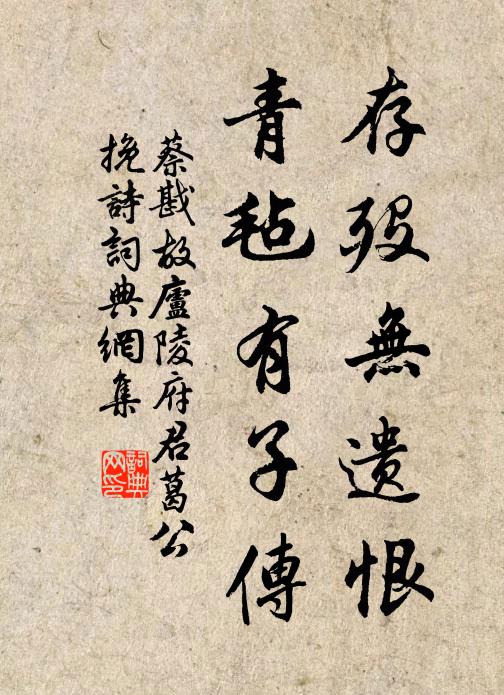 存歿無遺恨
青毡有子傳
蔡戡故廬陵府君葛公
挽詩詞典網集
詞典
网印